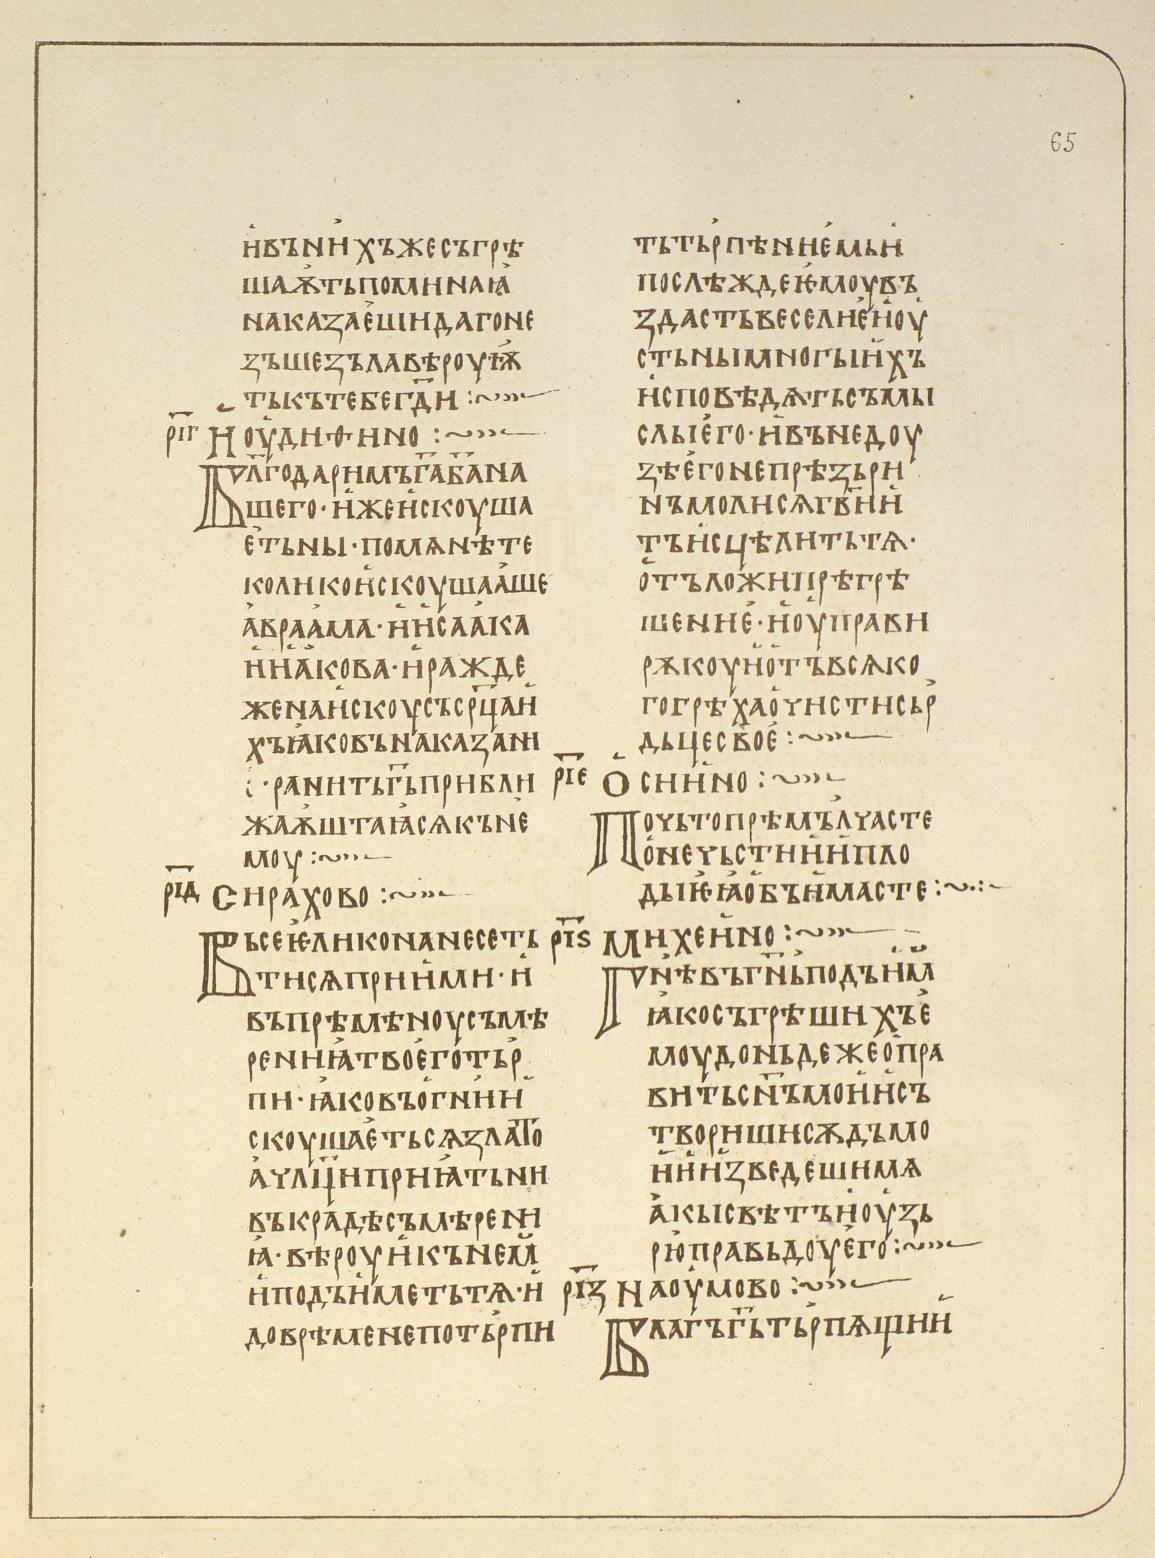 65
и҆въни҆хъжесъгрѣ
шаѫ҆тьпоминаꙗ҆
наказае҆шидагоне
зъшезълавѣроуѭ҆
тькътебег҃ди :~»»—
р҃іг И҆оу҆диѳино :~»»—
Бл҃годаримъг҃аб҃ана
шего·и҆жеи҆скоуша
е҆тьны·помѧнѣте
коликои҆скоушаа҆ше
а҆враа҆ма·и҆и҆саа҆ка
и҆иа҆кова·и҆ражде
женаи҆скоусъср҃цаи҆
хъꙗ҆ковънаказани
·ранитьг҃ьприбли
жаѫ҆штаꙗ҆сѧкъне
моу :~»»—
р҃ід Сирахово :~»»—
Вьсеѥ҆ликонанесеть
тисѧприи҆ми·и҆
въпрѣмѣноусъмѣ
рениꙗ҆твое҆готьр
пи·ꙗ҆ковъо҆гнии҆
скоушае҆тьсѧзлато
а҆чл҃циприꙗ҆тьни
въкрадѣсъмѣрени
ꙗ҆·вѣроуи҆кънем
и҆подъи҆метьтѧ·и҆
добрѣменепотьрпи
тьтьрпѣние҆мьи҆
послѣждеѥ҆моувъ
здастьвеселие҆и҆оу
стьнымногыи҆хъ
и҆сповѣдѧтьсъмы
слые҆го·и҆въведоу
зѣе҆гонепрѣзьри
нъмолисѧгв҃ии҆
тъи҆сцѣлитьтѧ·
о҆тъложипрѣгрѣ
шение҆·и҆оу҆прави
рѫкоуи҆о҆тъвсѧко
гогрѣхао҆чистисьр
дьцесвое҆ :~»»—
р҃іе О҆сии҆но :~»»—
Почьтопрѣмълчасте
о҆нечьстии҆и҆пло
дыѥ҆ꙗ҆о҆бъи҆масте :~··:~
р҃іѕ Михеи҆но :~»»—
Гнѣвъгн҃ьподъи҆м
ꙗ҆косъгрѣшихъе҆
моудоньдежео҆пра
витьсн҃ъмои҆и҆съ
творишисѫдъмо
и҆и҆и҆зведешимѧ
а҆кысвѣтъи҆оу҆зь
рю҆правьдоуе҆го :~»»—
р҃із Наоу҆мово :~»»—
Благъг҃ьтьрпѧщии҆